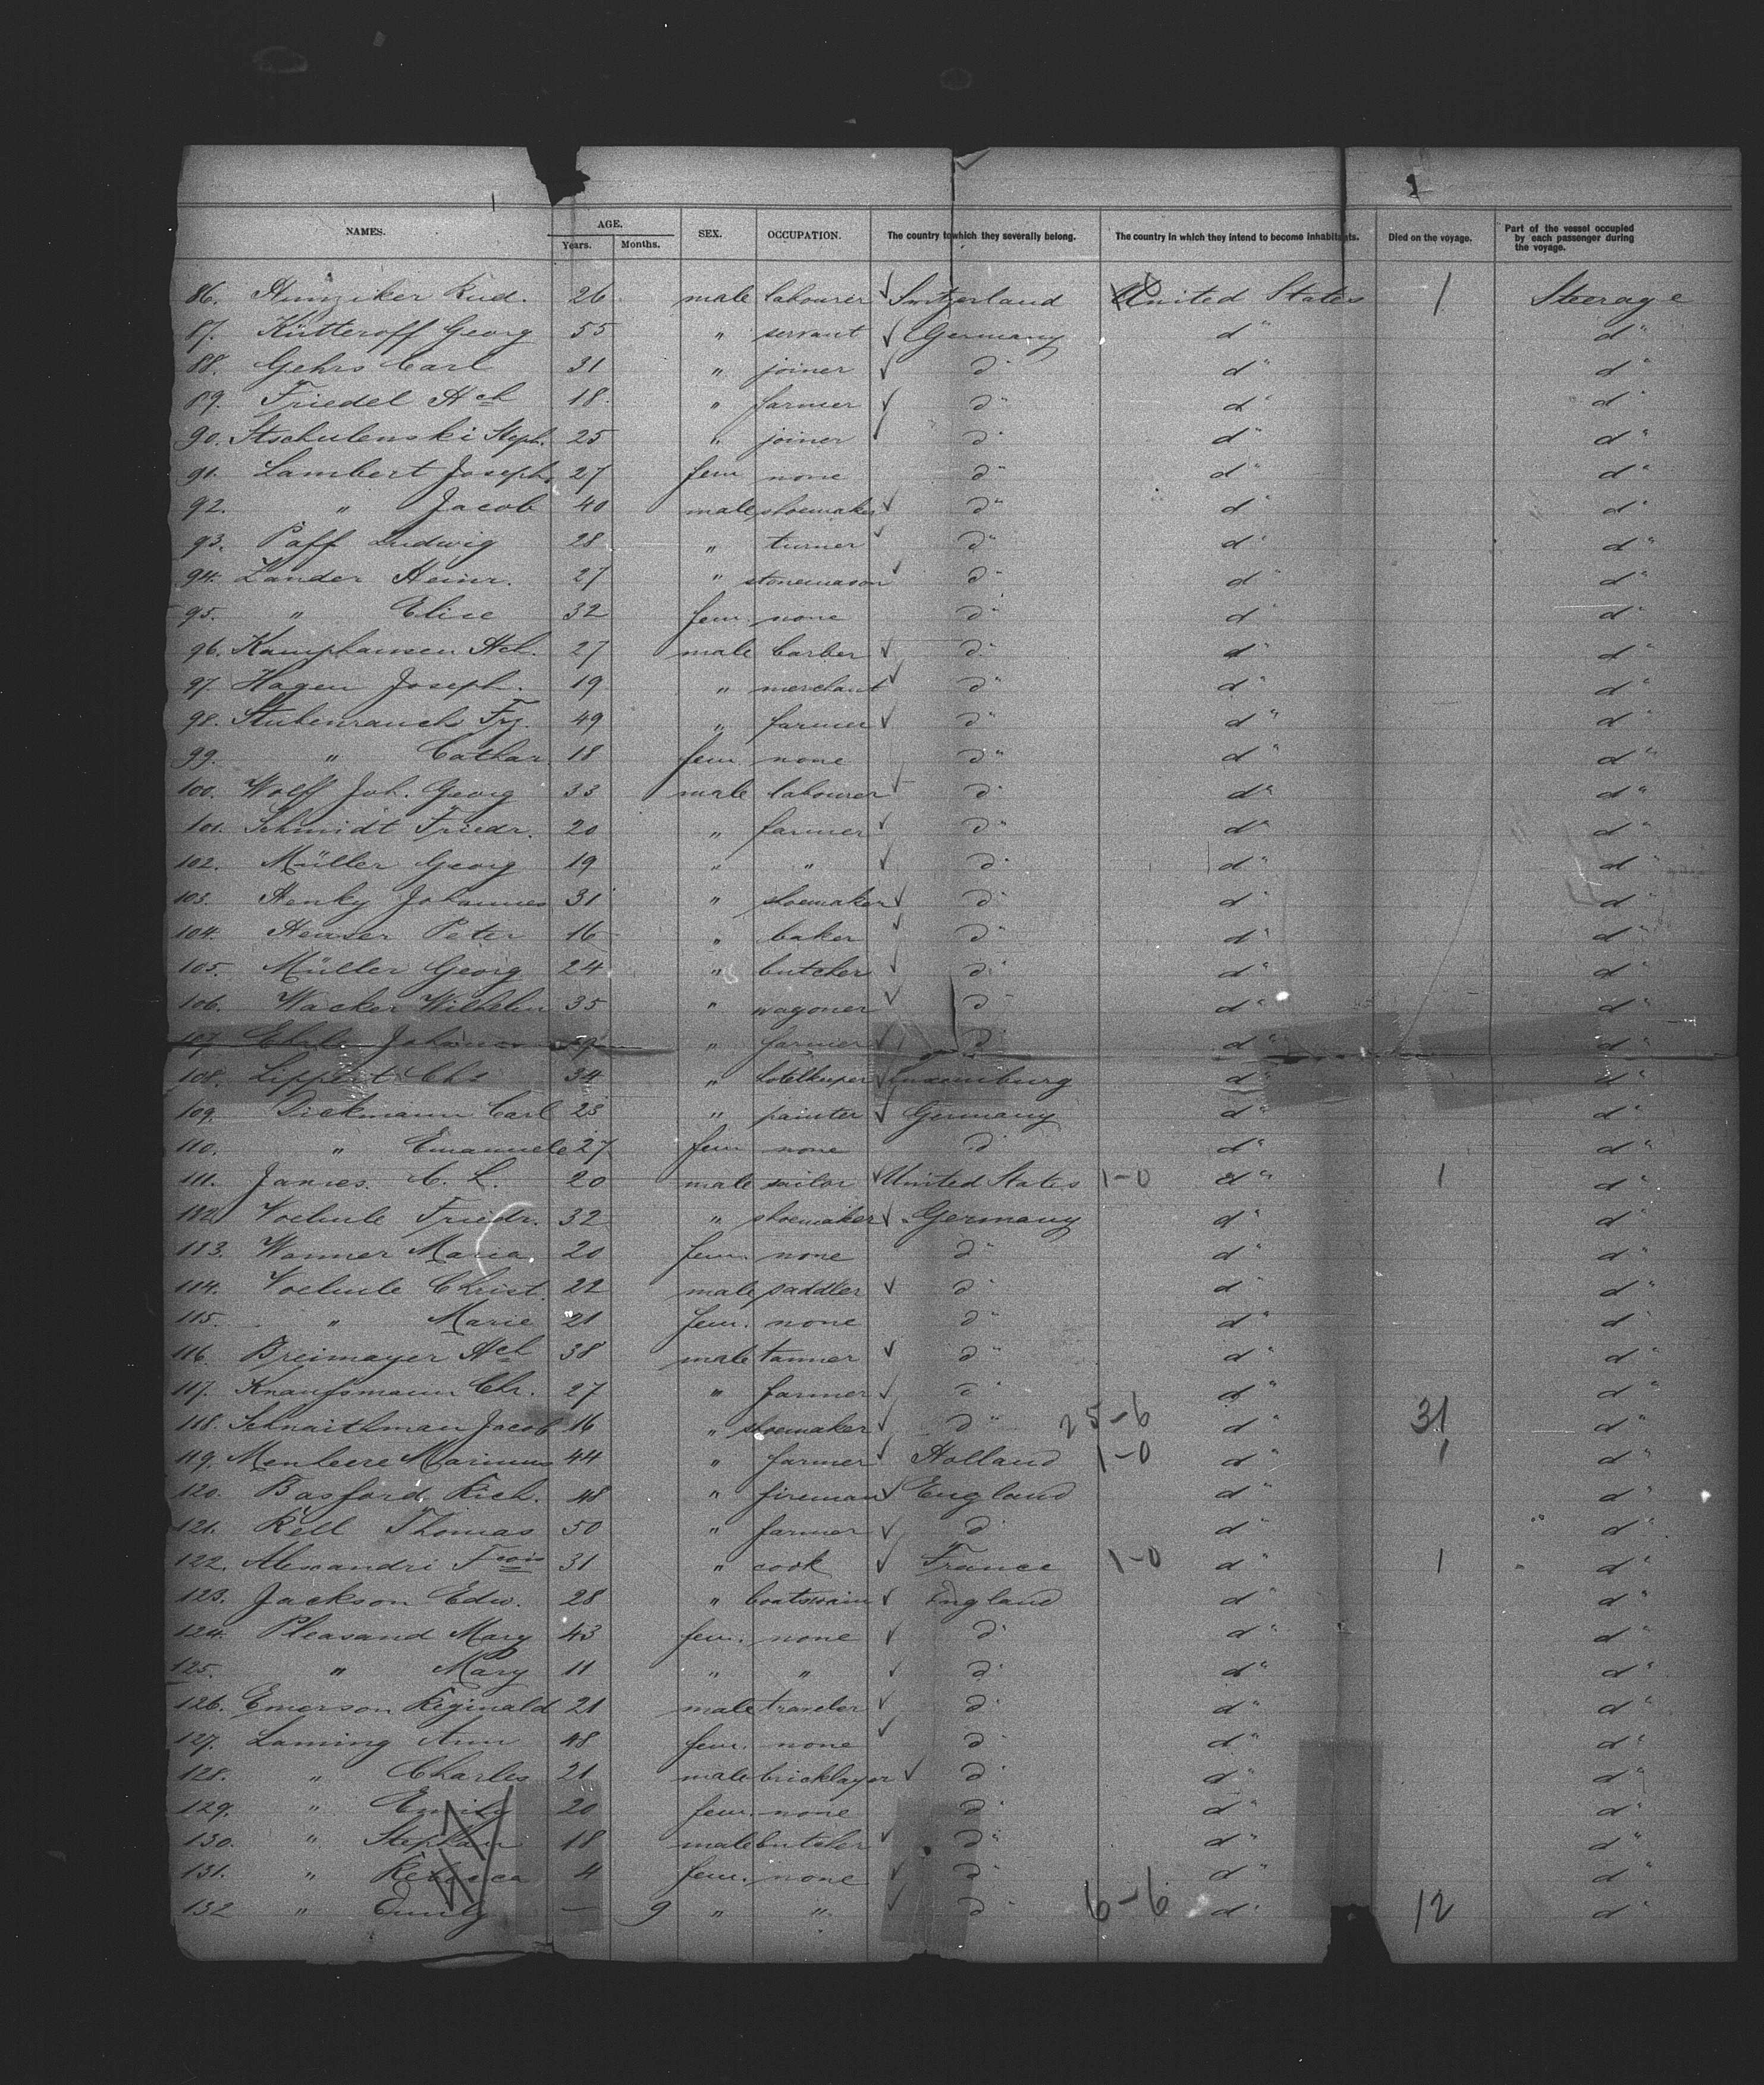 1
NAMES. AGE. Years. Months. SEX. OCCUPATION. The country to which they severally belong. The country in which they intend to become inhabitants. Died on the voyage. Part of the vessel occupied by each passenger during the voyage.
86. Hunziker Rud. 26 male labourer ✓ Switzerland United States 1 Steerage
87. Kütteroff Georg 55 " servant ✓ Germany d" d"
88. Gehrs Carl 31 " joiner ✓ d" d" d"
89. Friedel Hch 18 " farmer ✓ d" d" d"
90. Stschulenski Steph. 25 " joiner ✓ d" d" d"
91. Lambert Joseph. 27 fem none d" d" d"
92. " Jacob 40 male shoemaker ✓ d" d d"
93. Paff Ludwig 28 " turner ✓ d" d" d"
94. Zander Heinr. 27 " stonemason ✓ d" d" d"
95. " Elise 32 fem none d" d" d"
96. Kamphausen Hch. 27 male barber ✓ d" d" d"
97. Hagen Joseph. 19 " merchant ✓ d" d" d"
98. Stubenrauch Frz. 49 " farmer ✓ d" d" d"
99. " Cathar. 18 fem. none d" d" d"
100. Wolff Joh. Georg 33 male labourer ✓ d" d" d"
101. Schmidt Friedr. 20 " farmer ✓ d" d" d"
102. Müller Georg 19 " " ✓ d" d" d"
103. Henky Johannes 31 " shoemaker ✓ d" d" d"
104. Heuser Peter 16 " baker ✓ d" d" d"
105. Müller Georg 24 " butcher ✓ d" d" d"
106. Wacker Wilhelm 35 " wagoner ✓ d" d" d"
107. Johann " farmer ✓ d" d" d"
108. Lippert Chs 34 " hotelkeeper ✓ Luxemburg d" d"
109. Dickmann Carl 23 " painter ✓ Germany d" d"
110. " Emanuele 27 fem none d" d" d"
111. James C. L. 20 male sailor ✓ United States 1-0 d" 1 d"
112. Voehule Friedr. 32 " shoemaker ✓ Germany d" d"
113. Wanner Maria. 20 fem. none d" d" d"
114. Voehule Christ. 22 male saddler ✓ d" d" d"
115. " Marie 21 fem. none d" d" d"
116. Breimayer Hch 38 male tanner ✓ d" d" d"
117. Knausmann Chr. 27 " farmer ✓ d" d" d"
118. Schnaithman Jacob 16 " shoemaker ✓ d" 25-6 d" 31 d"
119. Menheere Marinus 44 " farmer ✓ Holland 1-0 d" 1 d"
120. Basford Rich. 48 " fireman ✓ England d" d"
121. Rell Thomas 50 " farmer ✓ d" d" d"
122. Alexandri Fcois 31 " cook ✓ France 1-0 d" 1 d"
123. Jackson Edw. 28 " boatswain ✓ England d" d"
124. Pleasand Mary 43 fem. none ✓ d" d" d"
125. " Mary 11 " " ✓ d" d" d"
126. Emerson Reginald 21 male traveler ✓ d" d" d"
127. Laming Ann 48 fem. none ✓ d" d" d"
128. " Charles 21 male bricklayer ✓ d" d" d"
129. " Emily 20 fem. none d" d" d"
130. " Stephan 18 male butcher ✓ d" d" d"
131. " Rebecca 4 fem. none ✓ d" d" d"
132 " Emily — 9 " " ✓ d" 6-6 d" 12 d"